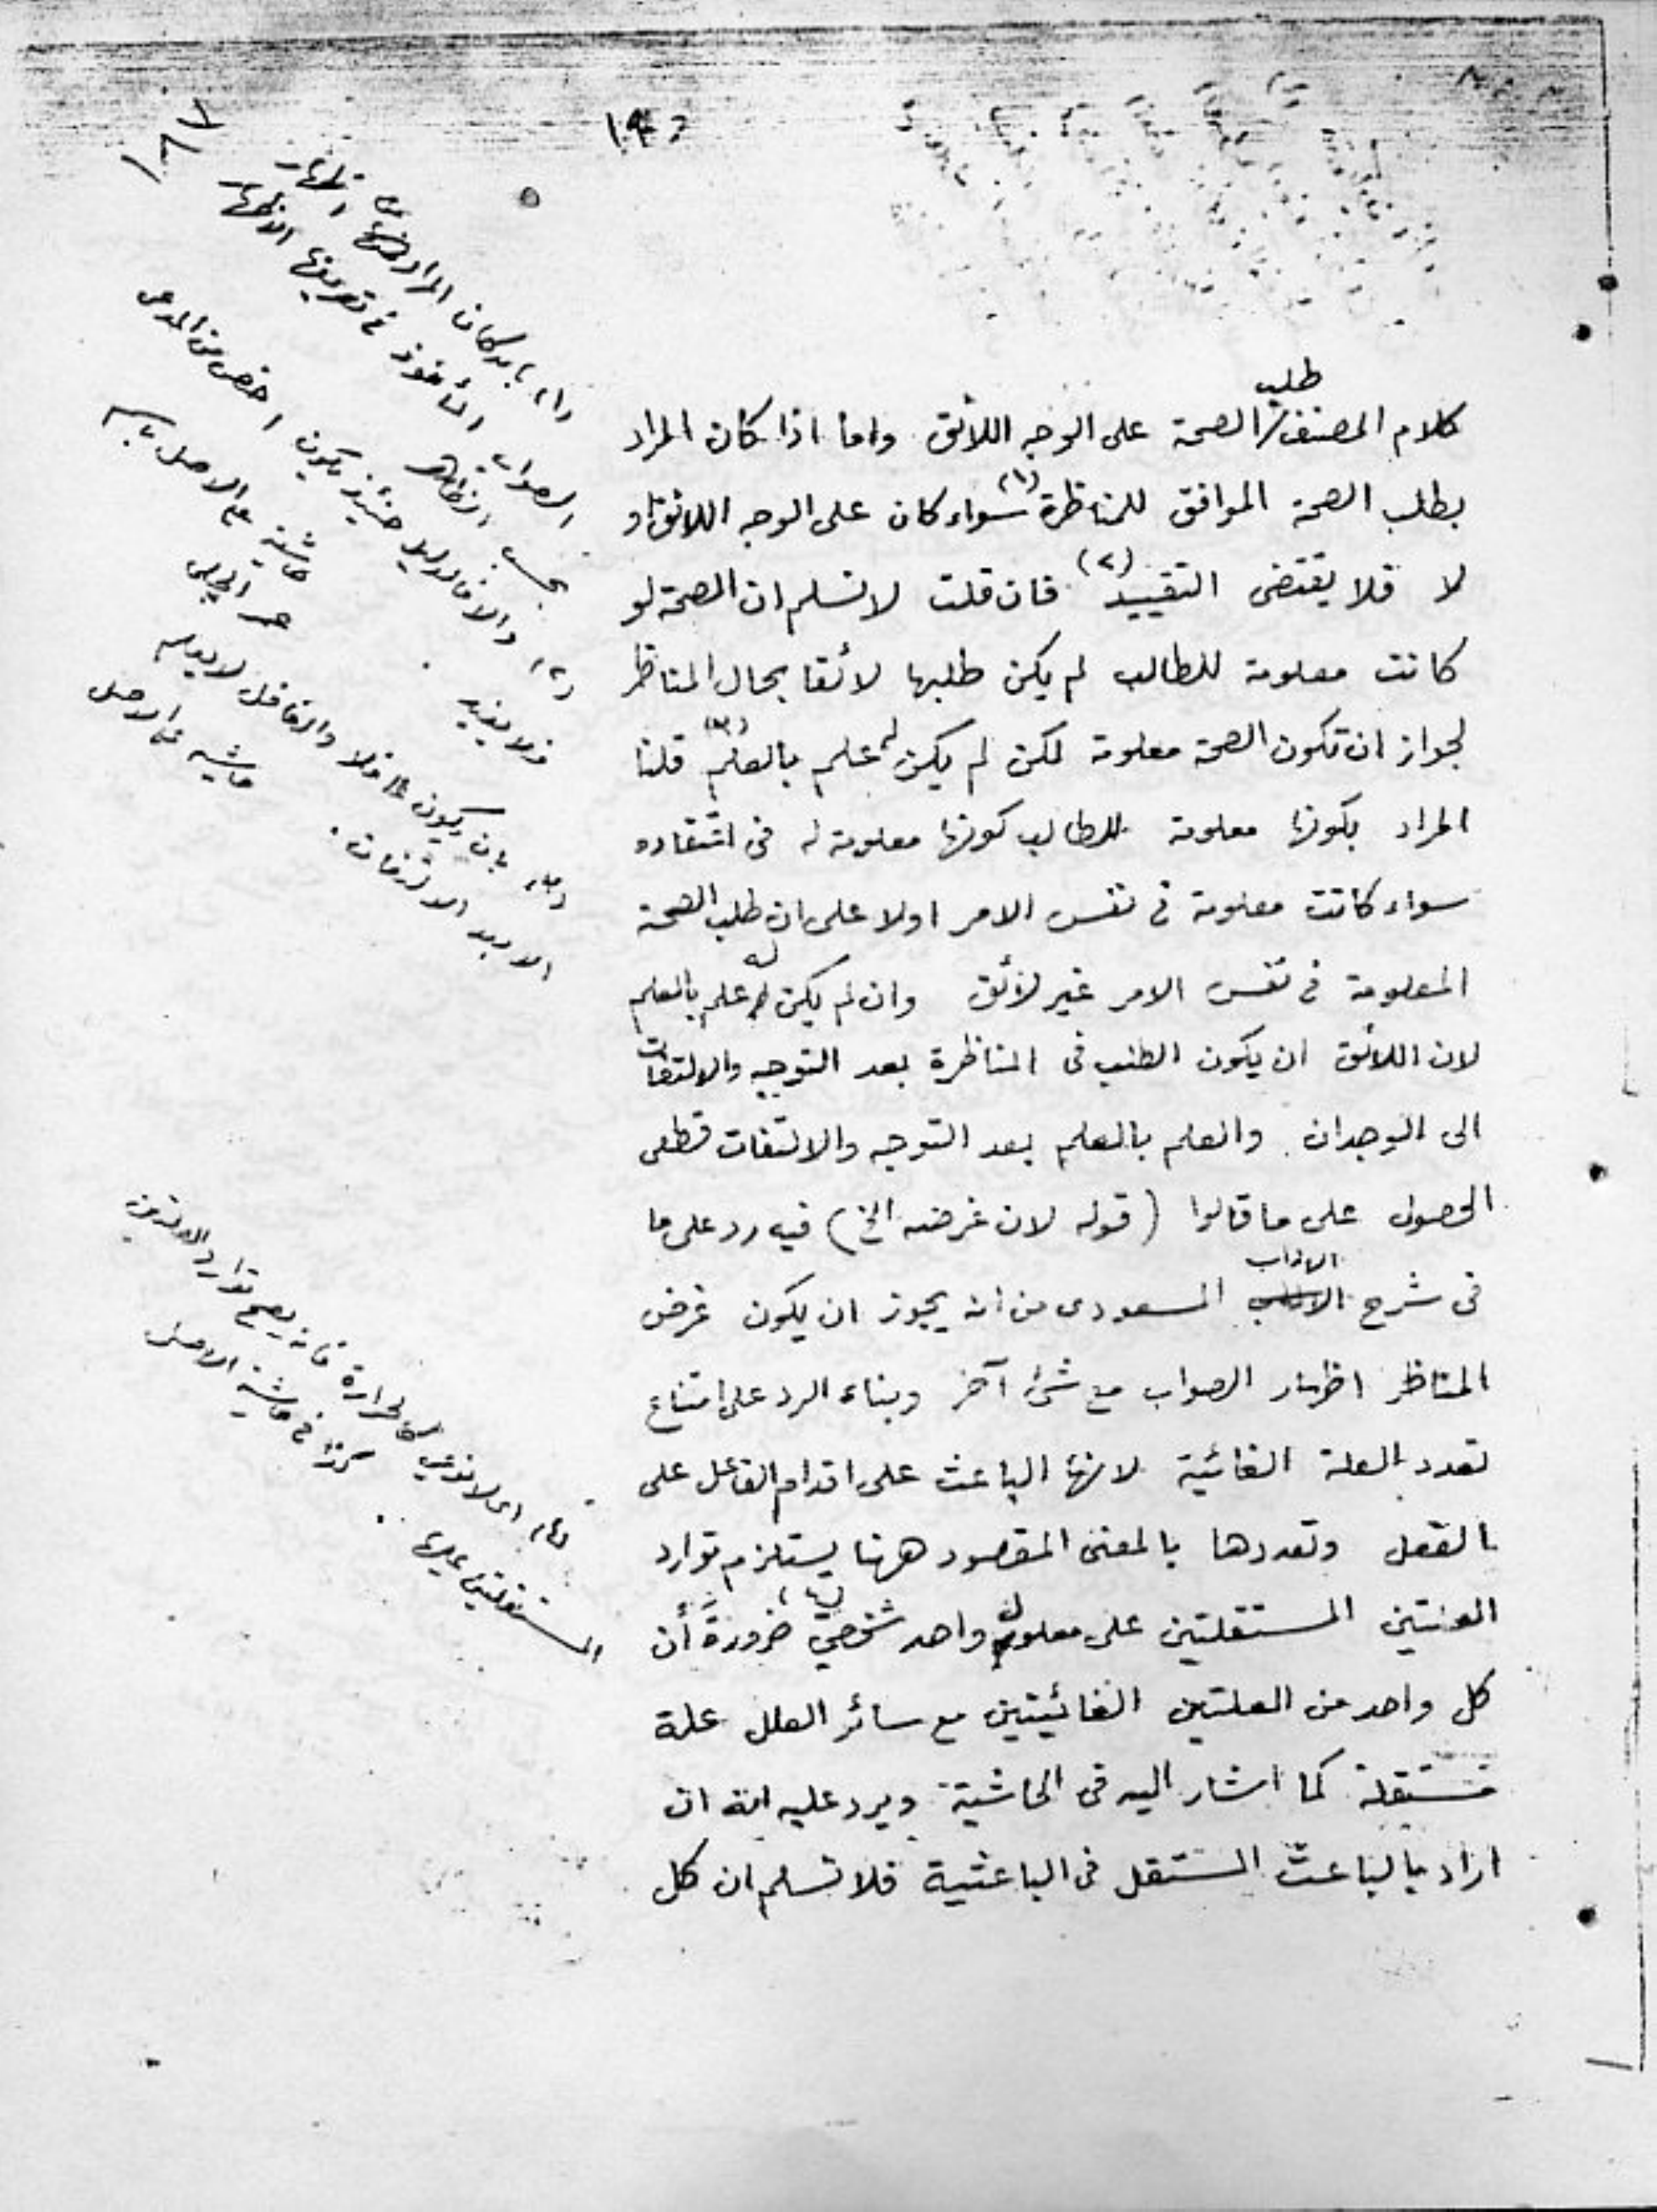 طلب
كلام المصنف الصحة على الوجه اللائق واما اذا كان المراد
بطلب الصحة الموافق للمناظرة (١) سواء كان على الوجه اللائق او
لا فلا يقتضى التقييد (٢) فان قلت لا نسلم ان الصحة لو
كانت معلومة للطالب لم يكن طلبها لائقا بحال المناظر
لجواز ان تكون الصحة معلومة لكن لم يكن له علم بالعلم (٣) قلنا
المراد بكونها معلومة للطالب كونها معلومة له فى اعتقاده
سواء كانت معلومة فى نفس الامر اولا على ان طلب الصحة
المعلومة فى نفس الامر غير لائق وان لم يكن له علم بالعلم
لان اللائق ان يكون الطلب فى المناظرة بعد التوجه والالتفات
الى الوجدان والعلم بالعلم بعد التوجه والالتفات قطعى
الحصول على ما قالوا (قوله لان غرضه الخ) فيه رد على ما
فى شرح الاداب المسعودى من انه يجوز ان يكون غرض
المناظر اظهار الصواب مع شئ آخر وبناء الرد على امتناع
تعدد العلة الغائية لانها الباعث على اقدام الفاعل على
الفعل وتعددها بالمعنى المقصود ههنا يستلزم توارد
العلتين المستقلتين على معلول واحد شخصي (٤) ضرورة أن
كل واحد من العلتين الغائيتين مع سائر العلل علة
مستقلة كما اشار اليه فى الحاشية ويرد عليه انه ان
اراد بالباعث المستقل فى الباعثية فلا نسلم ان كل
(١) بان كان المراد اظهار
الصواب المأخوذ في تعريفها الاظهار
بحسب الظاهر
(٢) والا فالدليل حينئذ يكون اخص من المدعى
فلا يفيد حاشية على الاصل
(٣) بان يكون غافلا والغافل لا يعلم
الا بعد الالتفات. حاشية على الاصل
(٤) اى لا نوعي كالحرارة فانه يصح توارد العلتين
المستقلتين عليها. كذا في حاشية الاصل